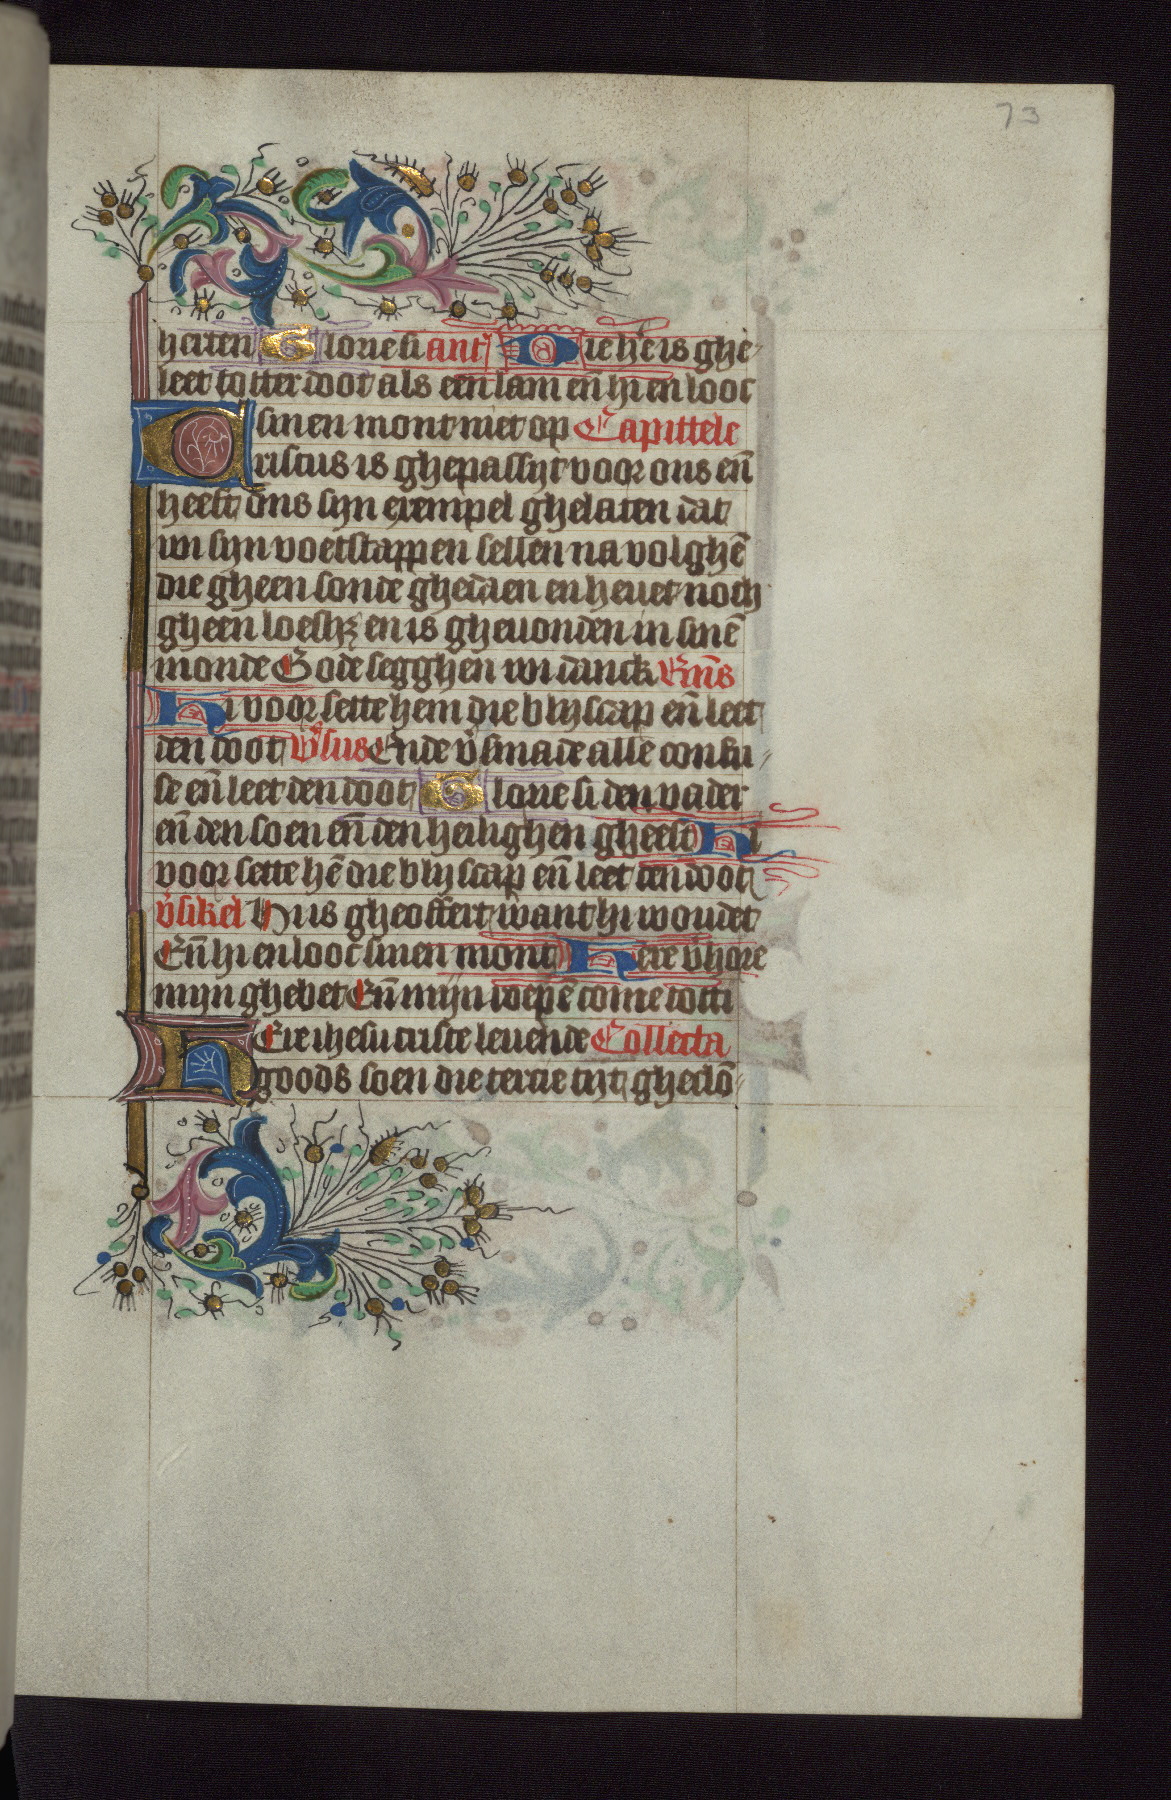 73
heiten Glorie si ant Die he͛e is ghe-
leet totter doot als een lam en̄ hi en looc
sinen mont niet op Capittele
Cristus is ghepassijt voor ons en̄
heeft ons sijn exempel ghelaten dat
wi sijn voetstappen sellen na volghē
die gheen sonde ghedaen en heuet noch
gheen loesh͛ en is gheuonden in sinē
monde Gode segghen wi danck
Hi voor sette hem die blijscap en̄ leet
den doot v͛sus Ende v͛smade alle confu
se en̄ leet den doot Glorie si den vader
en̄ den soen en̄ den heilighen gheest Hi
voor sette hē die blijscap en̄ leet den doot
v͛sikel Hi is gheoffert want hi woudet
En̄ hi en looc sinen mont Here v͛hore
mijn ghebet En̄ mijn roepē come totti
Here ihesu criste leuende Collecta
goods soen die tercie tijt ghecLō